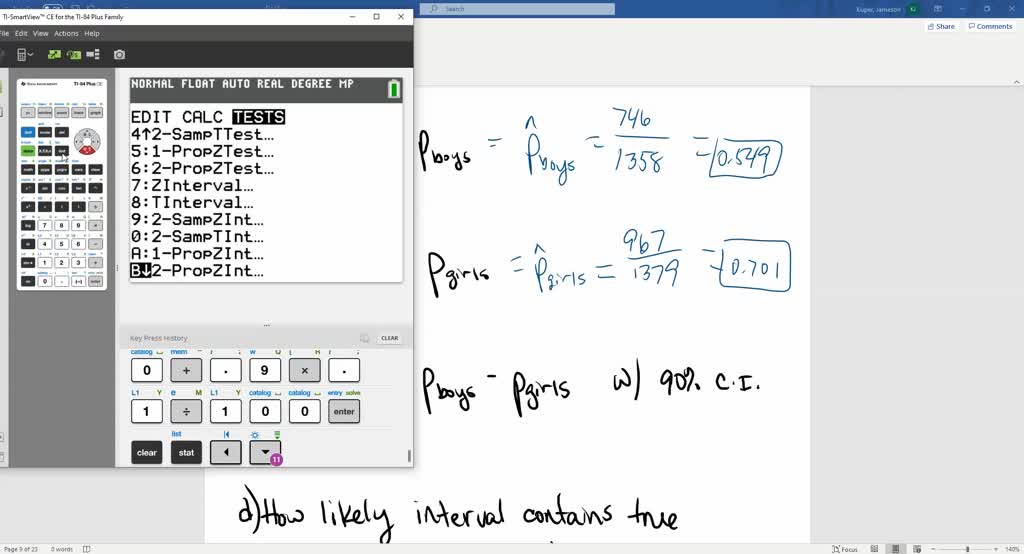 TI-SmartView™ CE for the TI-84 Plus Family
File Edit View Actions Help
Search
Kuper, Jameson
KJ
Share Comments
TI-84 Plus CE
NORMAL FLOAT AUTO REAL DEGREE MP
EDIT CALC TESTS
4↑2-SampTTest…
5:1-PropZTest…
6:2-PropZTest…
7:ZInterval…
8:TInterval…
9:2-SampZInt…
0:2-SampTInt…
A:1-PropZInt…
B↓2-PropZInt…
Key Press History
CLEAR
catalog mem
0 + . 9 × .
L1 Y e M L1 Y catalog catalog entry solve
1 ÷ 1 0 0 enter
list
clear stat
11
p boys = p̂ boys = 746/1358 = 0.549
p girls = p̂ girls = 967/1379 = 0.701
p boys - p girls w/ 90% C.I.
d) How likely interval contains true
Page 9 of 23 0 words
Focus
140%